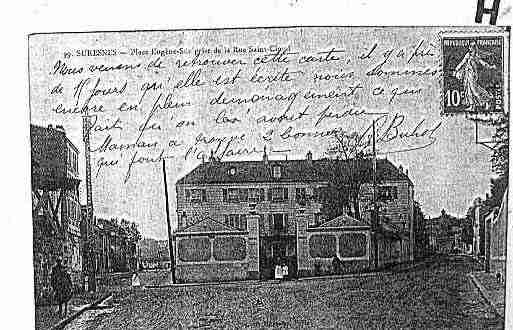 H
29. SURESNES — Place Eugène-Sue prise de la Rue Saint-Cloud
RÉPUBLIQUE FRANÇAISE
10 POSTES
Nous venons de retrouver cette carte, il y a près
de 8 jours qu'elle est écrite nous sommes
encore en plein déménagement ce qui
fait qu'on l'a avait perdu
Maman a trouvé 2 bonnes
qui font l'affaire